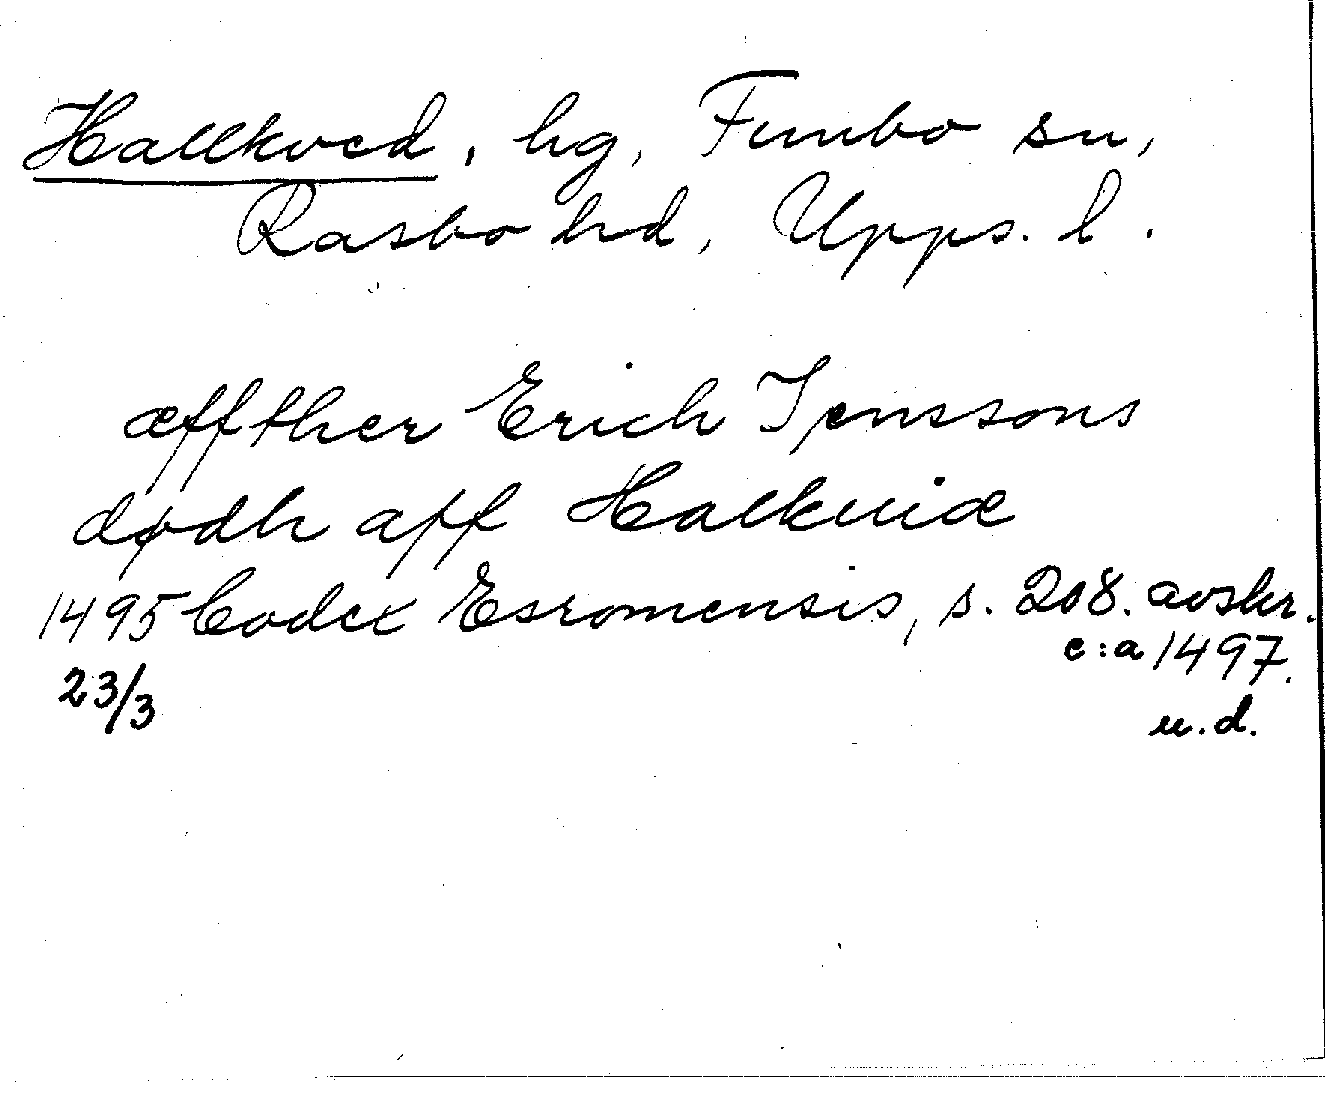 Hallkved, hg, Funbo sn,
Rasbo hd, Upps. l.
æffther Erich Jenssons
dødh aff Halkuiæ
1495 Codex Esromensis, s. 208. avskr.
23/3 c:a 1497.
u.d.